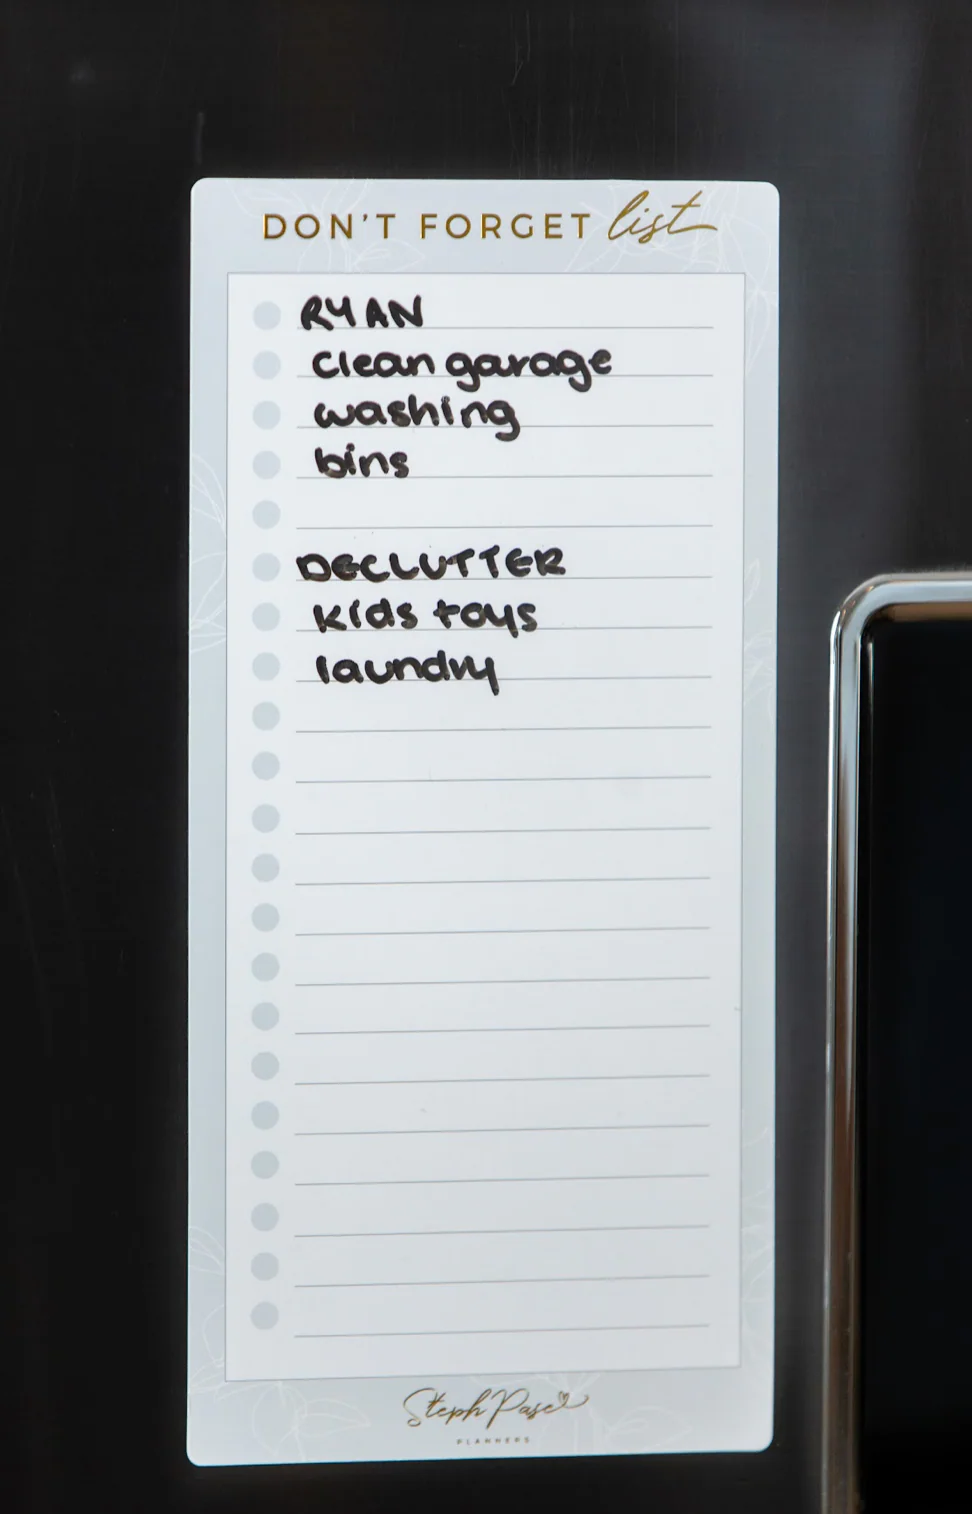 DON'T FORGET list
RYAN
clean garage
washing
bins
DECLUTTER
kids toys
laundry
Steph Pase
PLANNERS